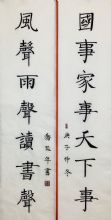 國事家事天下事
庚子仲冬
風聲雨聲讀書聲